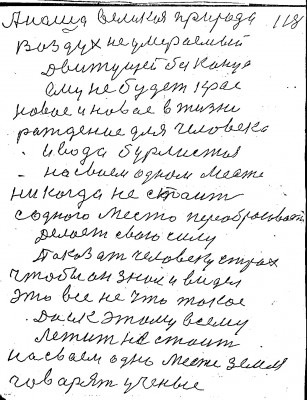 Анаша великая природа 118
воздух не умераемый
движущей би канца
ему не будет края
новое и новое в жизни
раждение для человека
и вода бурлистоя
на своем одном месте
никогда не стоит
с одного место перебросивать
делоет свою силу
показат человеку страх
чтобы он знал и видел
это все не что такое
Дык этому всему
летит не стоит
на своем одно месте земля
говарят ученые